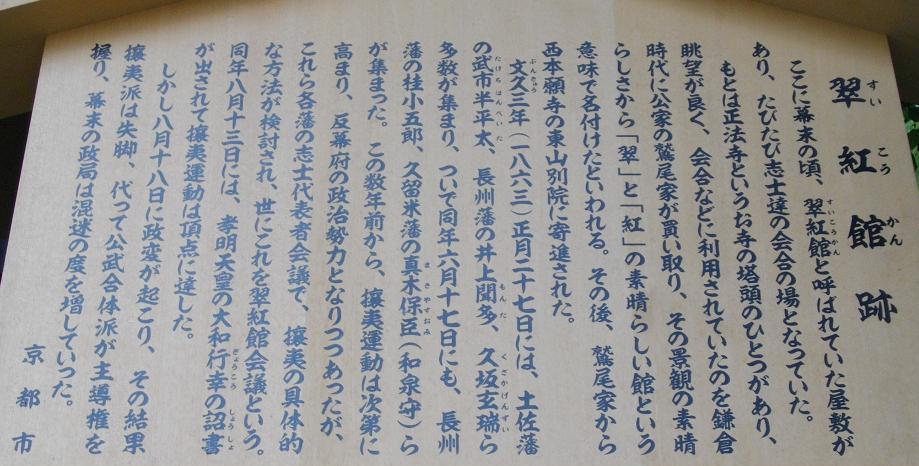 翠紅館跡
すいこうかん
ここに幕末の頃、翠紅館と呼ばれていた屋敷が
すいこうかん
あり、たびたび志士達の会合の場となっていた。
もとは正法寺というお寺の塔頭のひとつがあり、
眺望が良く、会合などに利用されていたのを鎌倉
時代に公家の鷲尾家が買い取り、その景観の素晴
らしさから「翠」と「紅」の素晴らしい館という
意味で名付けたといわれる。その後、鷲尾家から
西本願寺の東山別院に寄進された。
文久三年(一八六三)正月二十七日には、土佐藩
ぶんきゅう
の武市半平太、長州藩の井上聞多、久坂玄瑞ら
たけちはんぺいた もんた くざかげんずい
多数が集まり、ついで同年六月十七日にも、長州
藩の桂小五郎、久留米藩の真木保臣(和泉守)ら
まきやすおみ
が集まった。この数年前から、攘夷運動は次第に
高まり、反幕府の政治勢力となりつつあったが、
これら各藩の志士代表者会議で、攘夷の具体的
な方法が検討され、世にこれを翠紅館会議という。
同年八月十三日には、孝明天皇の大和行幸の詔書
ぎょうこう しょうしょ
が出されて攘夷運動は頂点に達した。
しかし八月十八日に政変が起こり、その結果
攘夷派は失脚、代って公武合体派が主導権を
握り、幕末の政局は混迷の度を増していった。
京都市